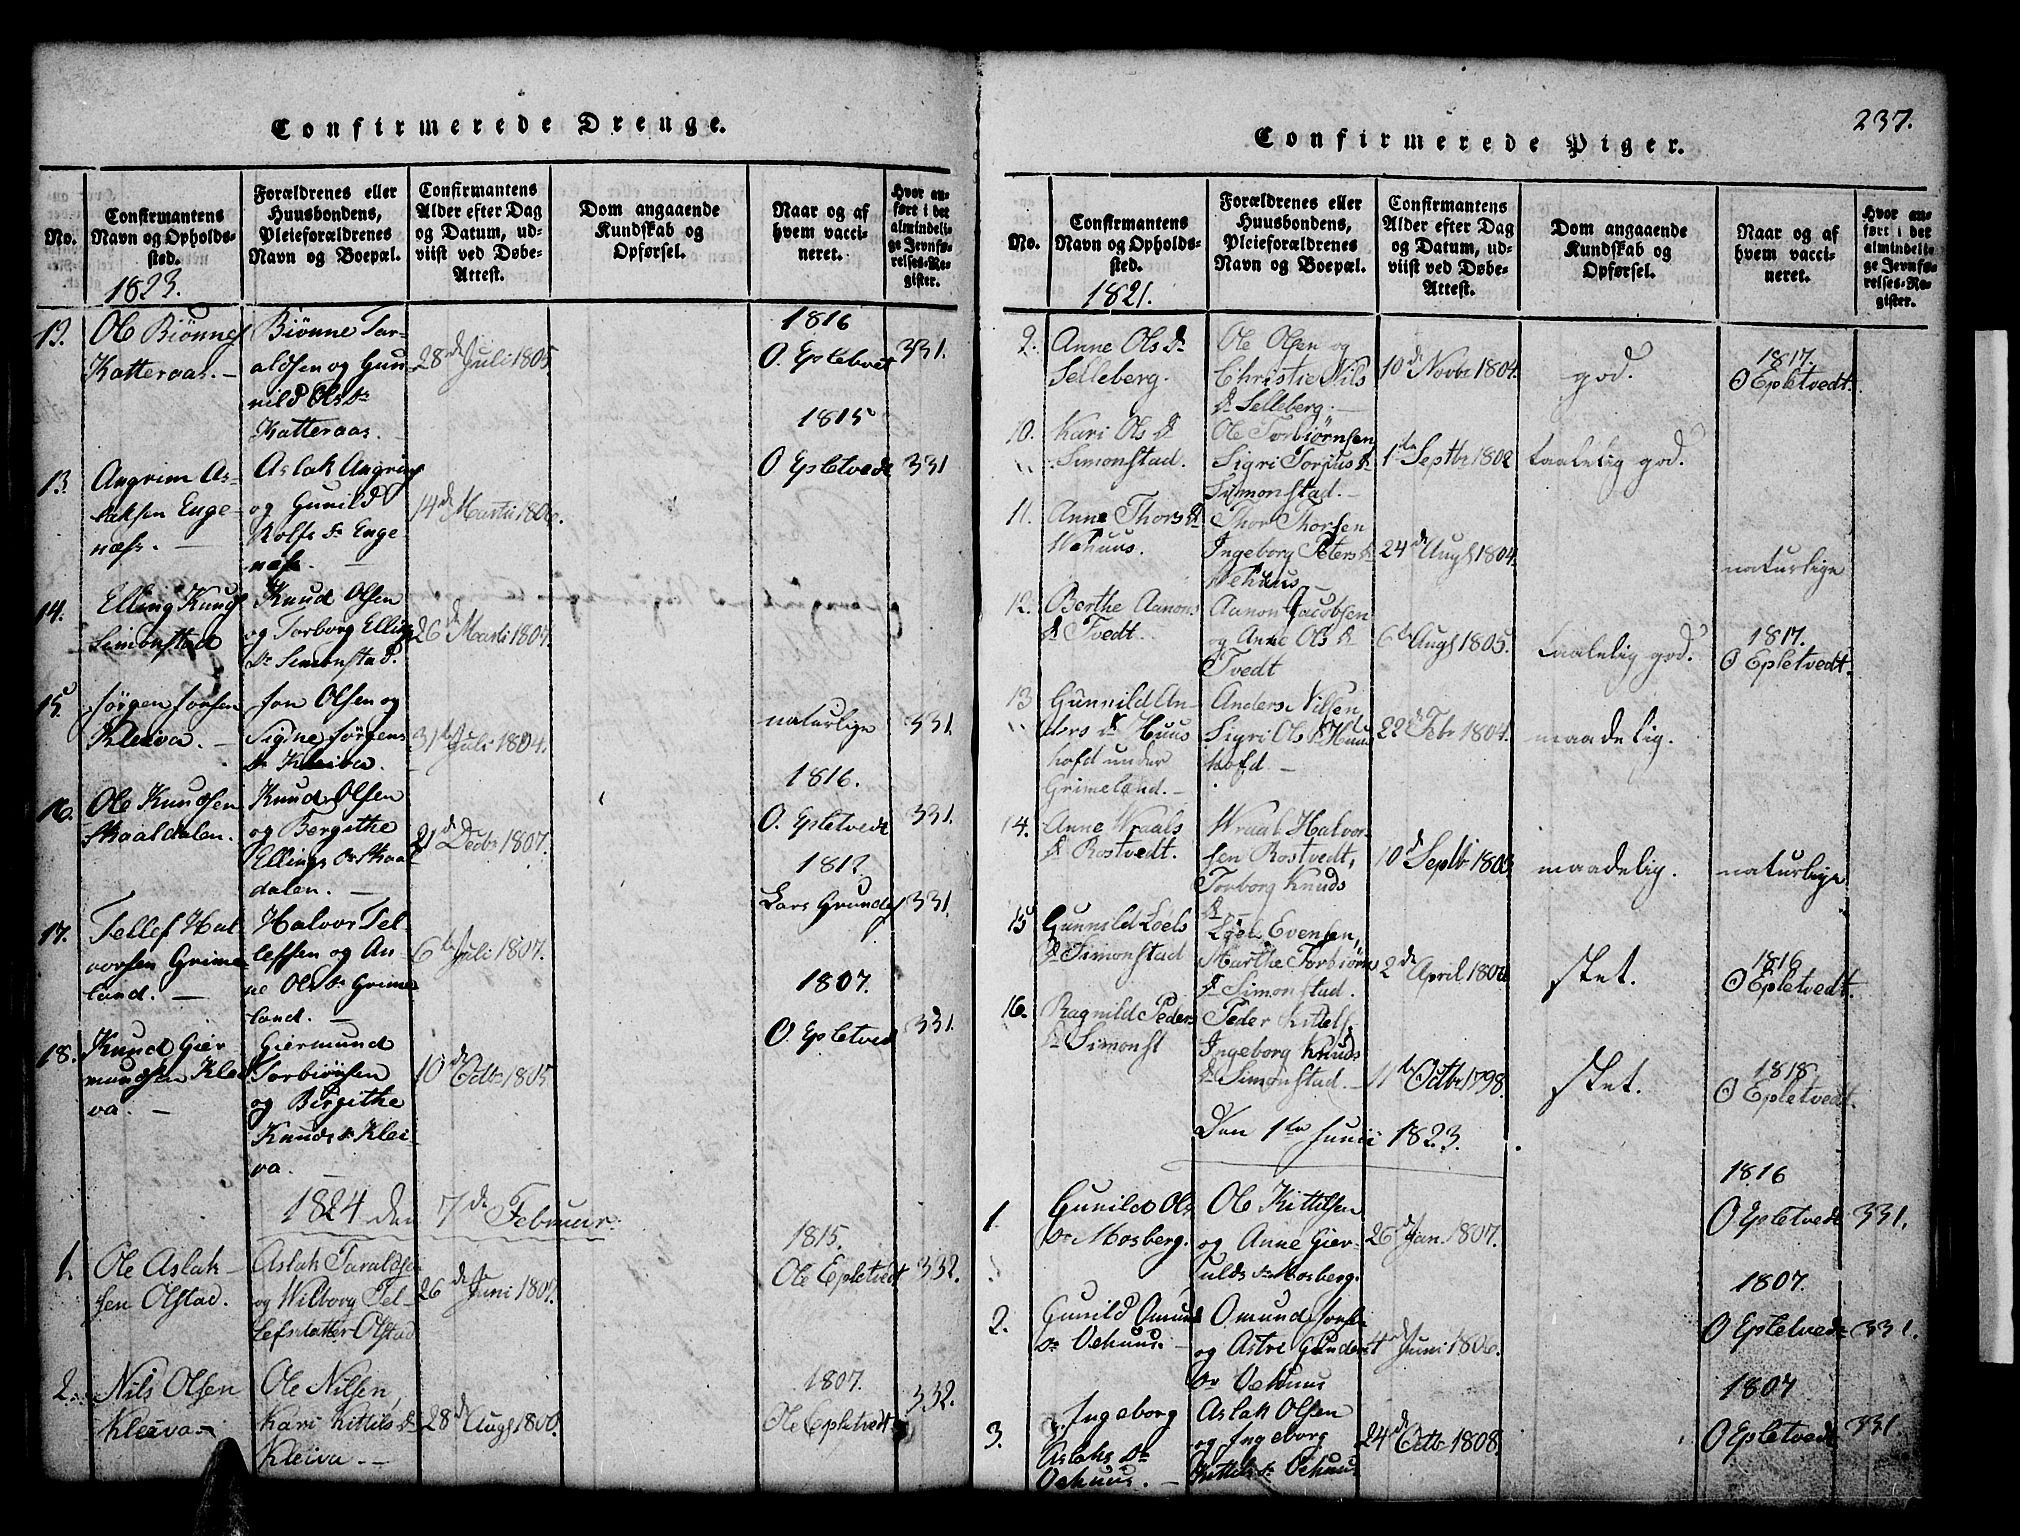 Confirmerede Drenge.
No.
Confirmantens
Navn og Opholds-
sted.
1823.
Forældrenes eller
Huusbondens,
Pleieforældrenes
Navn og Boepæl.
Confirmantens
Alder efter Dag
og Datum, ud-
viist ved Døbe-
Attest.
Dom angaaende
Kundskab og
Opførsel.
Naar og af
hvem vacci-
neret.
Hvor an-
ført i det
almindeli-
ge Jevnfø-
relses-Re-
gister.
Ole Biønnes
Katteraas. -
Biønne Tar-
aldsen og Gun-
nild Ols Dr
Katteraas.
28de Juli 1805
1816
O. Epletvet
331.
13.
Angrim As-
laksen Enge-
næss. -
Aslak Angrims
og Gunild
Rolfs Dr Enge
næss. -
14de Martii 1806.
1815
O Epletvedt
331
14.
Elling Knuds
Simonstad
Knud Olsen
og Torborg Ellings
Dr Simonstad.
26de Marti 1807.
15.
Jørgen Jonsen
Kleiva. -
Jon Olsen og
Signe Jørgens
Dr Kleiva.
31te Juli 1804.
naturlige
331.
16.
Ole Knudsen
Skaaldalen.
Knud Olsen
og Bergithe
Ellings Dr Skaa
dalen. -
21de Decbr 1807.
1816.
O. Epletvedt
331.
17.
Tellef Hal-
vorsen Grime
land. -
Halvor Tel-
lefsen og An-
ne Ols Dr Grime
land. -
6te Juli 1807.
1812.
Lars Grundes
331.
18.
Knud Gier
mundsen Klei
va. -
Giermund
Torbiønsen
og Birgithe
Knuds Dr Klei-
va. -
10de Octbr 1805
1807.
O Epletved
331.
1824 den 7de Februar.
1.
Ole Aslak-
sen Olstad.
Aslak Taraldsen
og Wilborg Tel-
lefsdatter Olstad
26de Juni 1807.
1815.
Ole Epletvedt
332.
2.
Nils Olsen
Kleiva -
Ole Nilsen,
Kari Kittils Dr
Kleiva. -
28de Augs 1806.
1807.
Ole Epletvedt
332.
237.
Confirmerede Piger.
No.
Confirmantens
Navn og Opholds-
sted.
1821.
Forældrenes eller
Huusbondens,
Pleieforældrenes
Navn og Boepæl.
Confirmantens
Alder efter Dag
og Datum, ud-
viist ved Døbe-
Attest.
Dom angaaende
Kundskab og
Opførsel.
Naar og af
hvem vacci-
neret.
Hvor an-
ført i det
almindeli-
ge Jevnfø-
relses-Re-
gister.
9.
Anne Ols Dr
Selleberg.
Ole Olsen og
Christie Nils
Dr Selleberg. -
10de Novbr 1804.
god.
1817.
O Epletvedt.
10.
Kari Ols Dr
Simonstad.
Ole Torbiørnsen
Sigri Torjus Dr
Simonstad. -
1te Septbr 1802
taalelig god.
11.
Anne Thors Dr
Vehuus.
Thor Thorsen
Ingeborg Peters Dr
Vehuus
24de Augs 1804.
naturlige
12.
Berthe Aanons
Dr Tvedt.
Aanon Jacobsen
og Anne Ols Dr
Tvedt
6te Augs 1805.
taalelig god.
1817.
O Epletvedt.
13
Gunnild An-
ders Dr Huus
hofd under
Grimeland. -
Anders Nilsen,
Sigri Ols Dr Huus
hofd. -
22de Febr 1804.
maadelig.
14.
Anne Wraals
Dr Rostvedt.
Wraal Halvor-
sen Rostvedt,
Torborg Knuds
Dr
10de Septbr 1803
maadelig.
naturlige
15
Gunnild Loels
Dr Simonstad
Loel Evensen,
Marthe Torbiørns
Dr Simonstad.
2de April 1806
slet.
1816
O Epletvedt.
16.
Ragnild Peders
Dr Simonst
Peder Kittels,
Ingeborg Knuds
Dr Simonstad. -
11te Octbr 1798.
slet.
1818
O Epletvedt.
Den 1te Junii 1823.
1.
Gunild Ols
Dr Mosberg.
Ole Kittilsen
og Anne Gier-
ulds Dr Mosberg.
26de Jan. 1807.
1816
O Epletvedt
331.
2.
Gunild Omund
Dr Vehuus. -
Omund Jonsen
og Astri Gunders
Dr Vehuus
4de Juni 1806.
1807.
O Epletvedt
331.
3.
Ingeborg
Aslaks Dr
Vehuus. -
Aslak Olsen
og Ingeborg
Kittils Dr Vehuus
24de Octbr 1808.
1807
O Epletvedt
331.